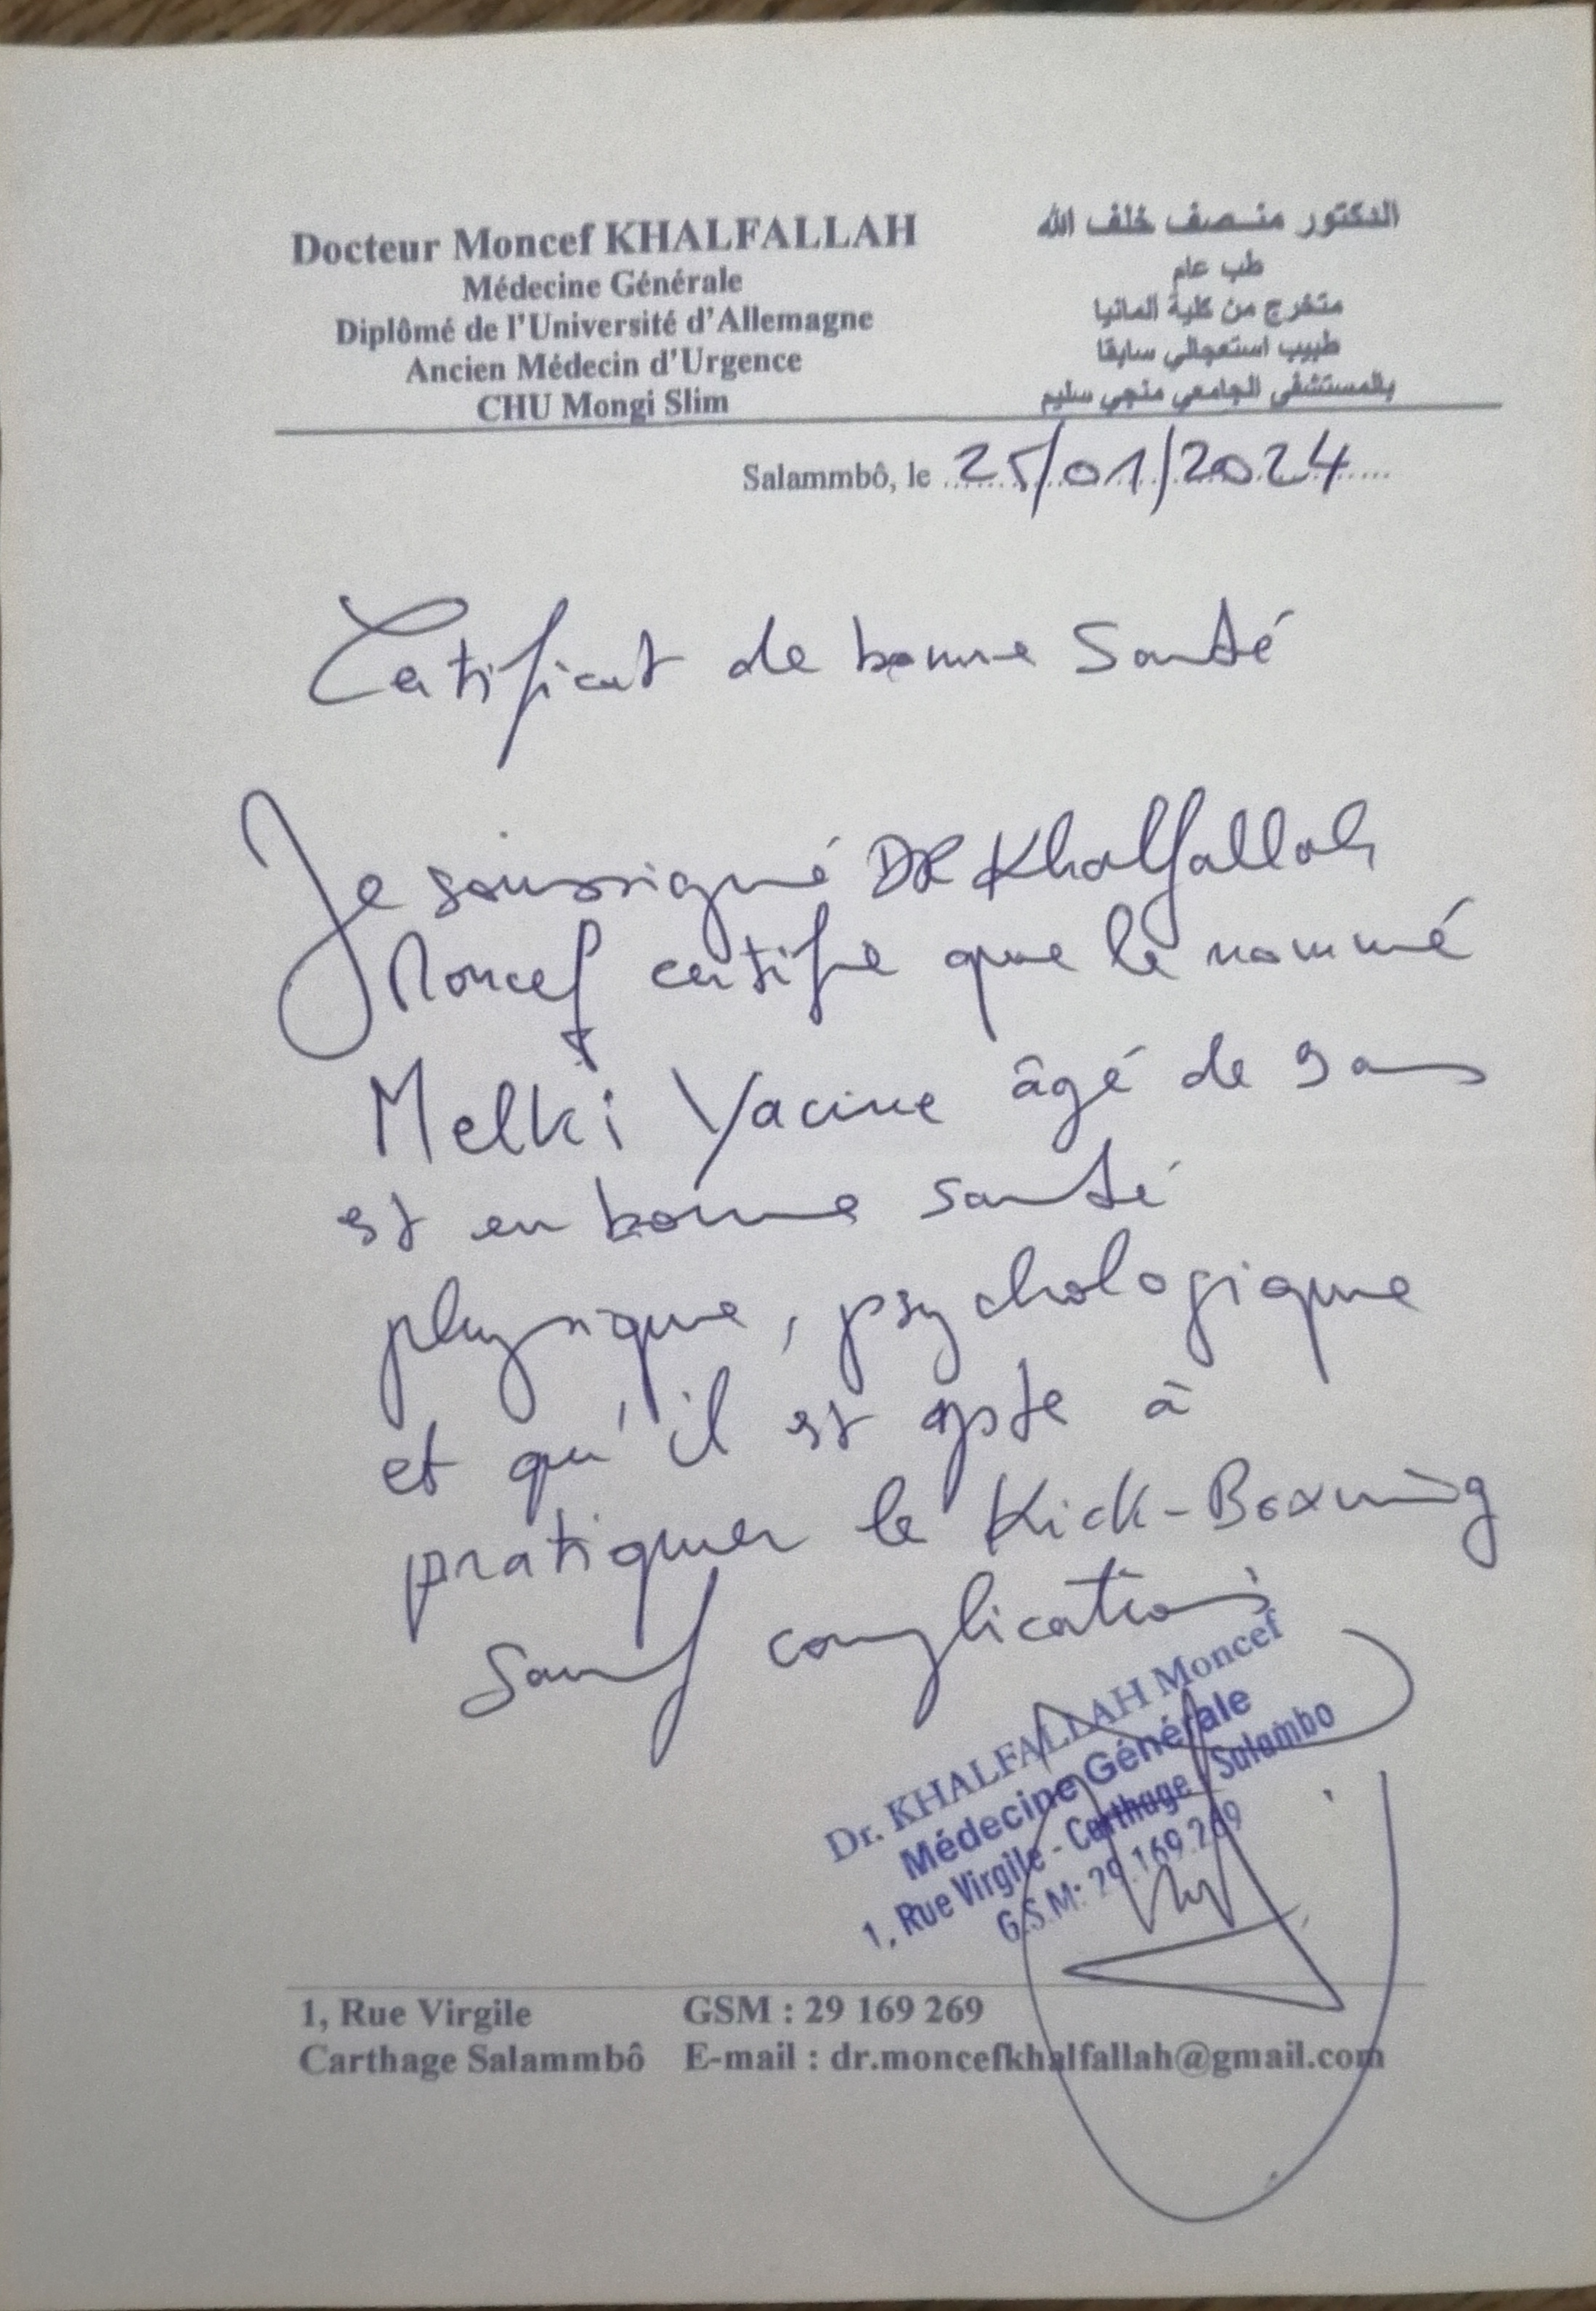 Docteur Moncef KHALFALLAH
Médecine Générale
Diplômé de l'Université d'Allemagne
Ancien Médecin d'Urgence
CHU Mongi Slim
الدكتور منصف خلف الله
طب عام
متخرج من كلية ألمانيا
طبيب استعجالي سابقا
بالمستشفى الجامعي منجي سليم
Salammbô, le 25/01/2024
Certificat de bonne Santé
Je soussigné DR Khalfallah
Moncef certifie que le nommé
Melki Yacine âgé de 9 ans
est en bonne santé
physique, psychologique
et qu'il est apte à
pratiquer le Kick-Boxing
Sauf complications
Dr. KHALFALLAH Moncef
Médecine Générale
1, Rue Virgile - Carthage - Salambo
G.S.M: 29.169.269
1, Rue Virgile GSM : 29 169 269
Carthage Salammbô E-mail : dr.moncefkhalfallah@gmail.com